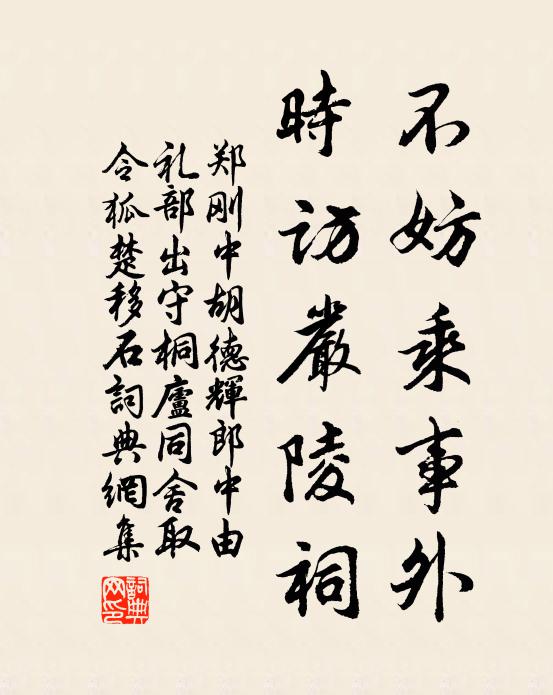 不妨乘事外
時訪嚴陵祠
郑刚中胡德輝郎中由
礼部出守桐廬同舍取
令狐楚移石詞典網集
詞典網印